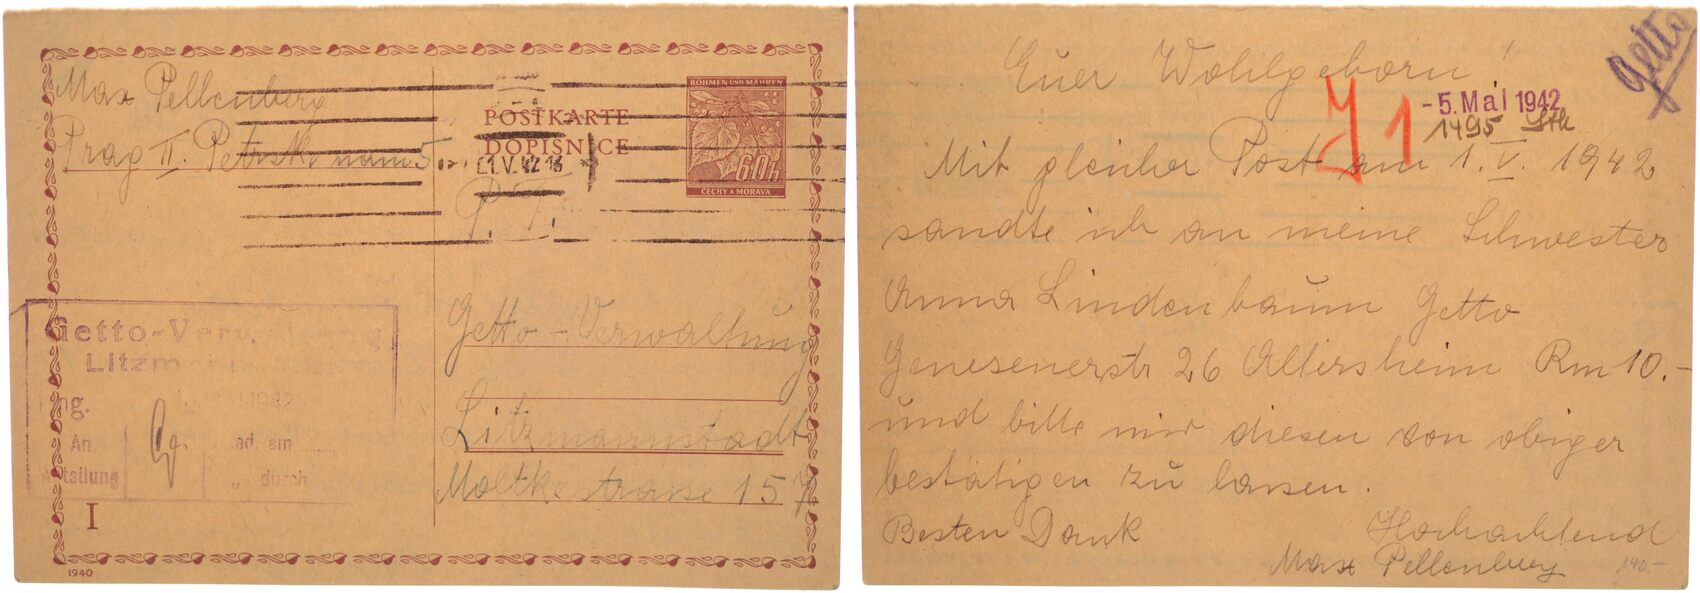 Max Pellenberg
Prag II. Petrske nam 5
BÖHMEN UND MÄHREN
POSTKARTE
DOPISNICE
60h
ČECHY A MORAVA
P. T.
Getto-Verwaltung
Litzmannstadt
Moltkestrasse 157
Getto-Verwaltung
Litzmannstadt
Eing.
An
Abteilung
ad. am
" durch
I
1940
Getto
Euer Wohlgeborn!
J 1
-5. Mai 1942
1495
Mit gleicher Post am 1. V. 1942
sandte ich an meine Schwester
Anna Lindenbaum Getto
Genesenerstr 26 Altersheim Rm 10.-
und bitte mir diesen von obiger
bestätigen zu lassen.
Besten Dank
Hochachtend
Max Pellenberg
140.-